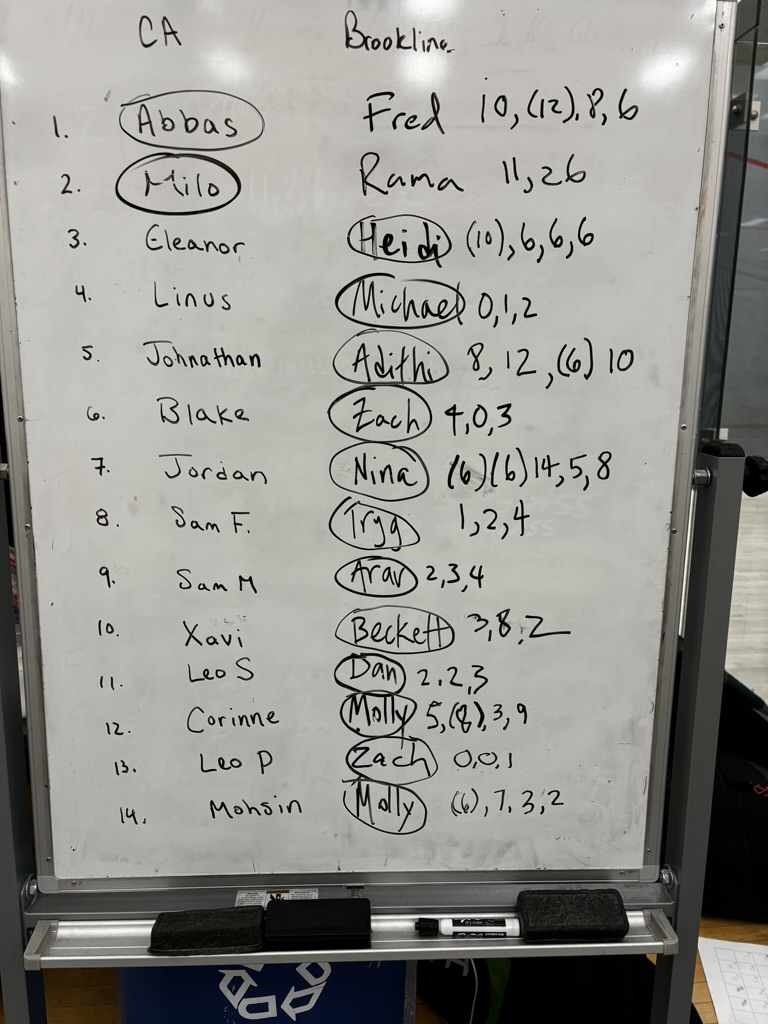 CA Brookline
1. Abbas Fred 10, (12), 8, 6
2. Milo Rama 11, 26
3. Eleanor Heidi (10), 6, 6, 6
4. Linus Michael 0, 1, 2
5. Johnathan Adithi 8, 12, (6) 10
6. Blake Zach 4, 0, 3
7. Jordan Nina (6) (6) 14, 5, 8
8. Sam F. Tryg 1, 2, 4
9. Sam M Arav 2, 3, 4
10. Xavi Beckett 3, 8, 2
11. Leo S Dan 2, 2, 3
12. Corinne Molly 5, (8), 3, 9
13. Leo P Zach 0, 0, 1
14. Mohsin Molly (6), 7, 3, 2